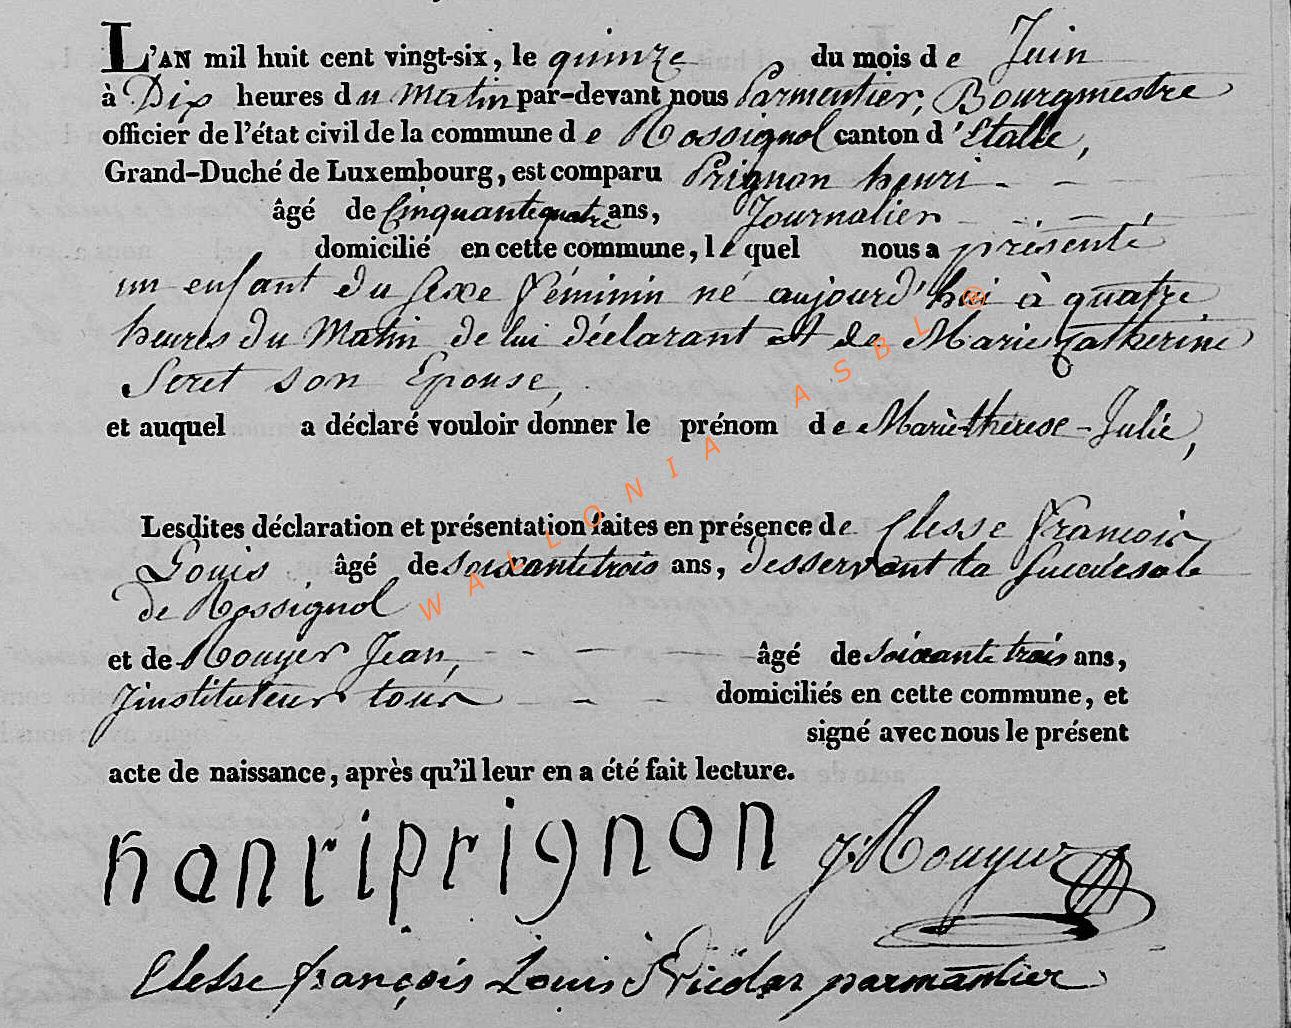 L'AN mil huit cent vingt-six, le quinze du mois de Juin
à Dix heures du Matin par-devant nous Parmentier, Bourgmestre
officier de l'état civil de la commune de Rossignol canton d'Etalle,
Grand-Duché de Luxembourg, est comparu Prignon henri
âgé de Cinquantequatre ans, Journalier
domicilié en cette commune, lequel nous a présenté
un enfant du sexe féminin né aujourd'hui à quatre
heures du Matin de lui déclarant et de Marie Catherine
Seret son Epouse,
et auquel a déclaré vouloir donner le prénom de Marie-thérese-Julie,
Lesdites déclaration et présentation faites en présence de Clesse francois
Louis, âgé de soixantetrois ans, desservant la Succursale
de Rossignol
et de Rouyer Jean, âgé de soixante trois ans,
instituteur tous domiciliés en cette commune, et
signé avec nous le présent
acte de naissance, après qu'il leur en a été fait lecture.
hanri prignon J. Rouyer
Clesse françois Louis Nicolas parmantier
WALLONIA ASBL ®